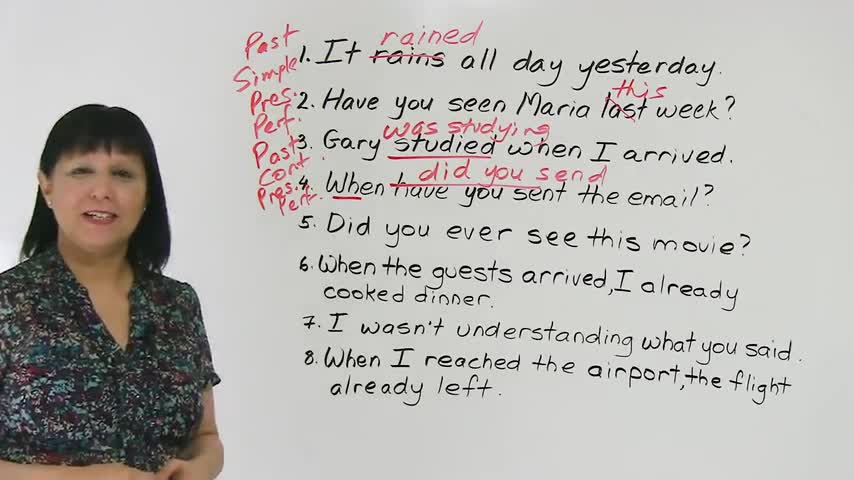 rained
Past 1. It rains all day yesterday.
Simple this
Pres. 2. Have you seen Maria last week?
Perf. was studying
Past 3. Gary studied when I arrived.
Cont. did you send
Pres. 4. When have you sent the email?
Perf.
5. Did you ever see this movie?
6. When the guests arrived, I already
cooked dinner.
7. I wasn't understanding what you said.
8. When I reached the airport, the flight
already left.